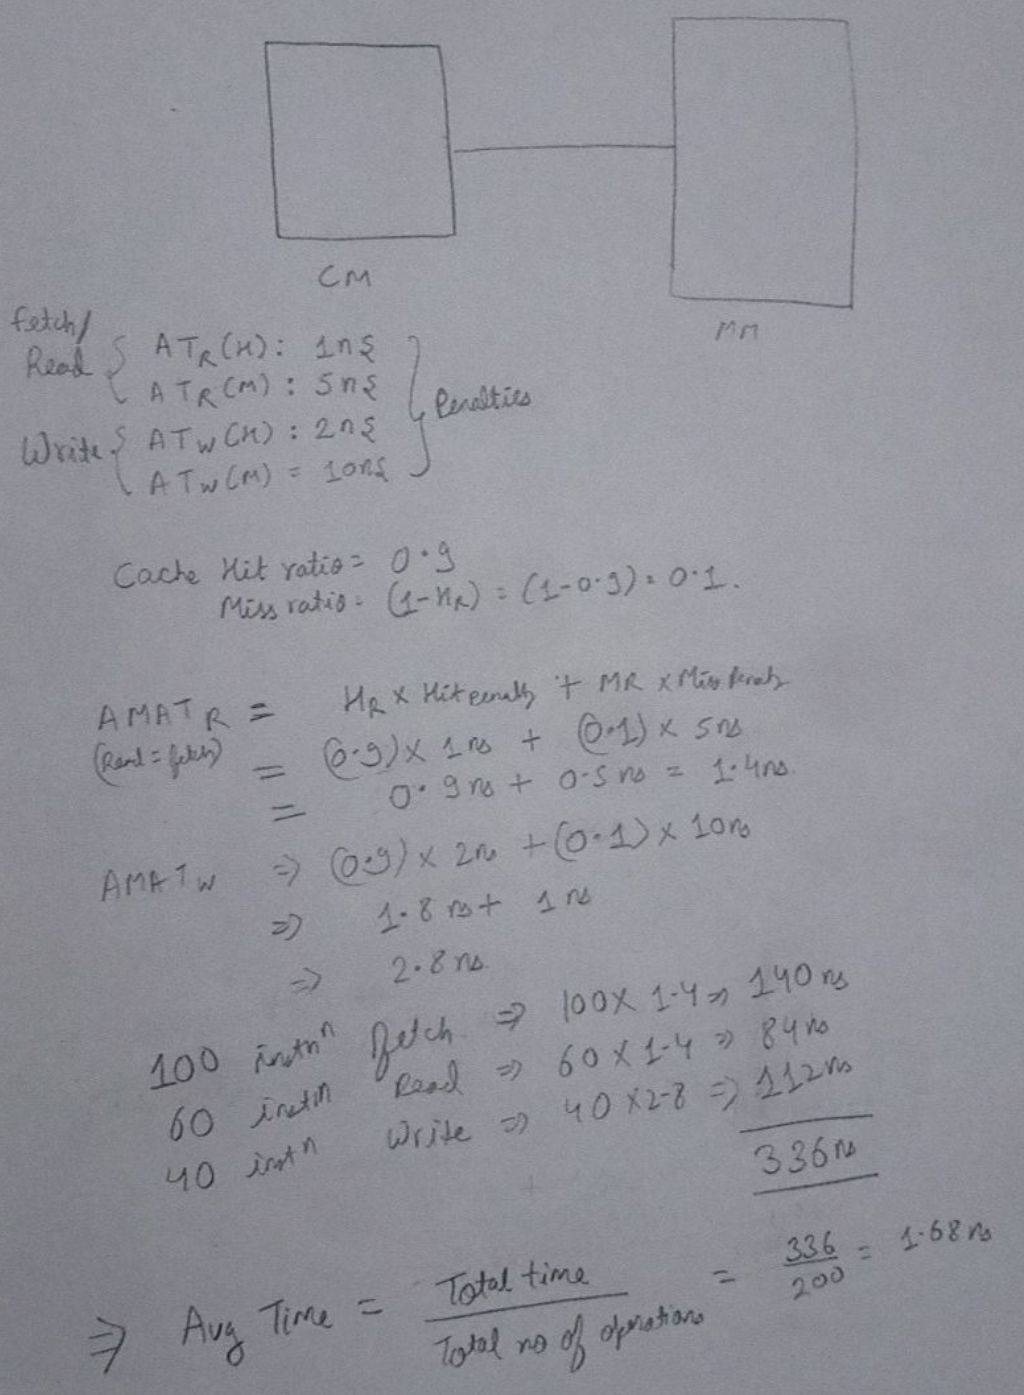 CM
MM
fetch/
Read { ATR(H): 1ns
ATR(M): 5ns
Write { ATW(H): 2ns
ATW(M) = 10ns
} Penalties
Cache Hit ratio = 0.9
Miss ratio = (1-HR) = (1-0.9) = 0.1.
AMATR = HR x Hit penalty + MR x Miss Penalty
(Read = fetch) = (0.9) x 1ns + (0.1) x 5ns
= 0.9ns + 0.5ns = 1.4ns.
AMATW ⇒ (0.9) x 2ns + (0.1) x 10ns
⇒ 1.8ns + 1ns
⇒ 2.8ns.
100 instnⁿ fetch ⇒ 100 x 1.4 ⇒ 140ns
60 instn Read ⇒ 60 x 1.4 ⇒ 84ns
40 instⁿ Write ⇒ 40 x 2.8 ⇒ 112ns
336ns
⇒ Avg Time = Total time / Total no of operations = 336/200 = 1.68ns